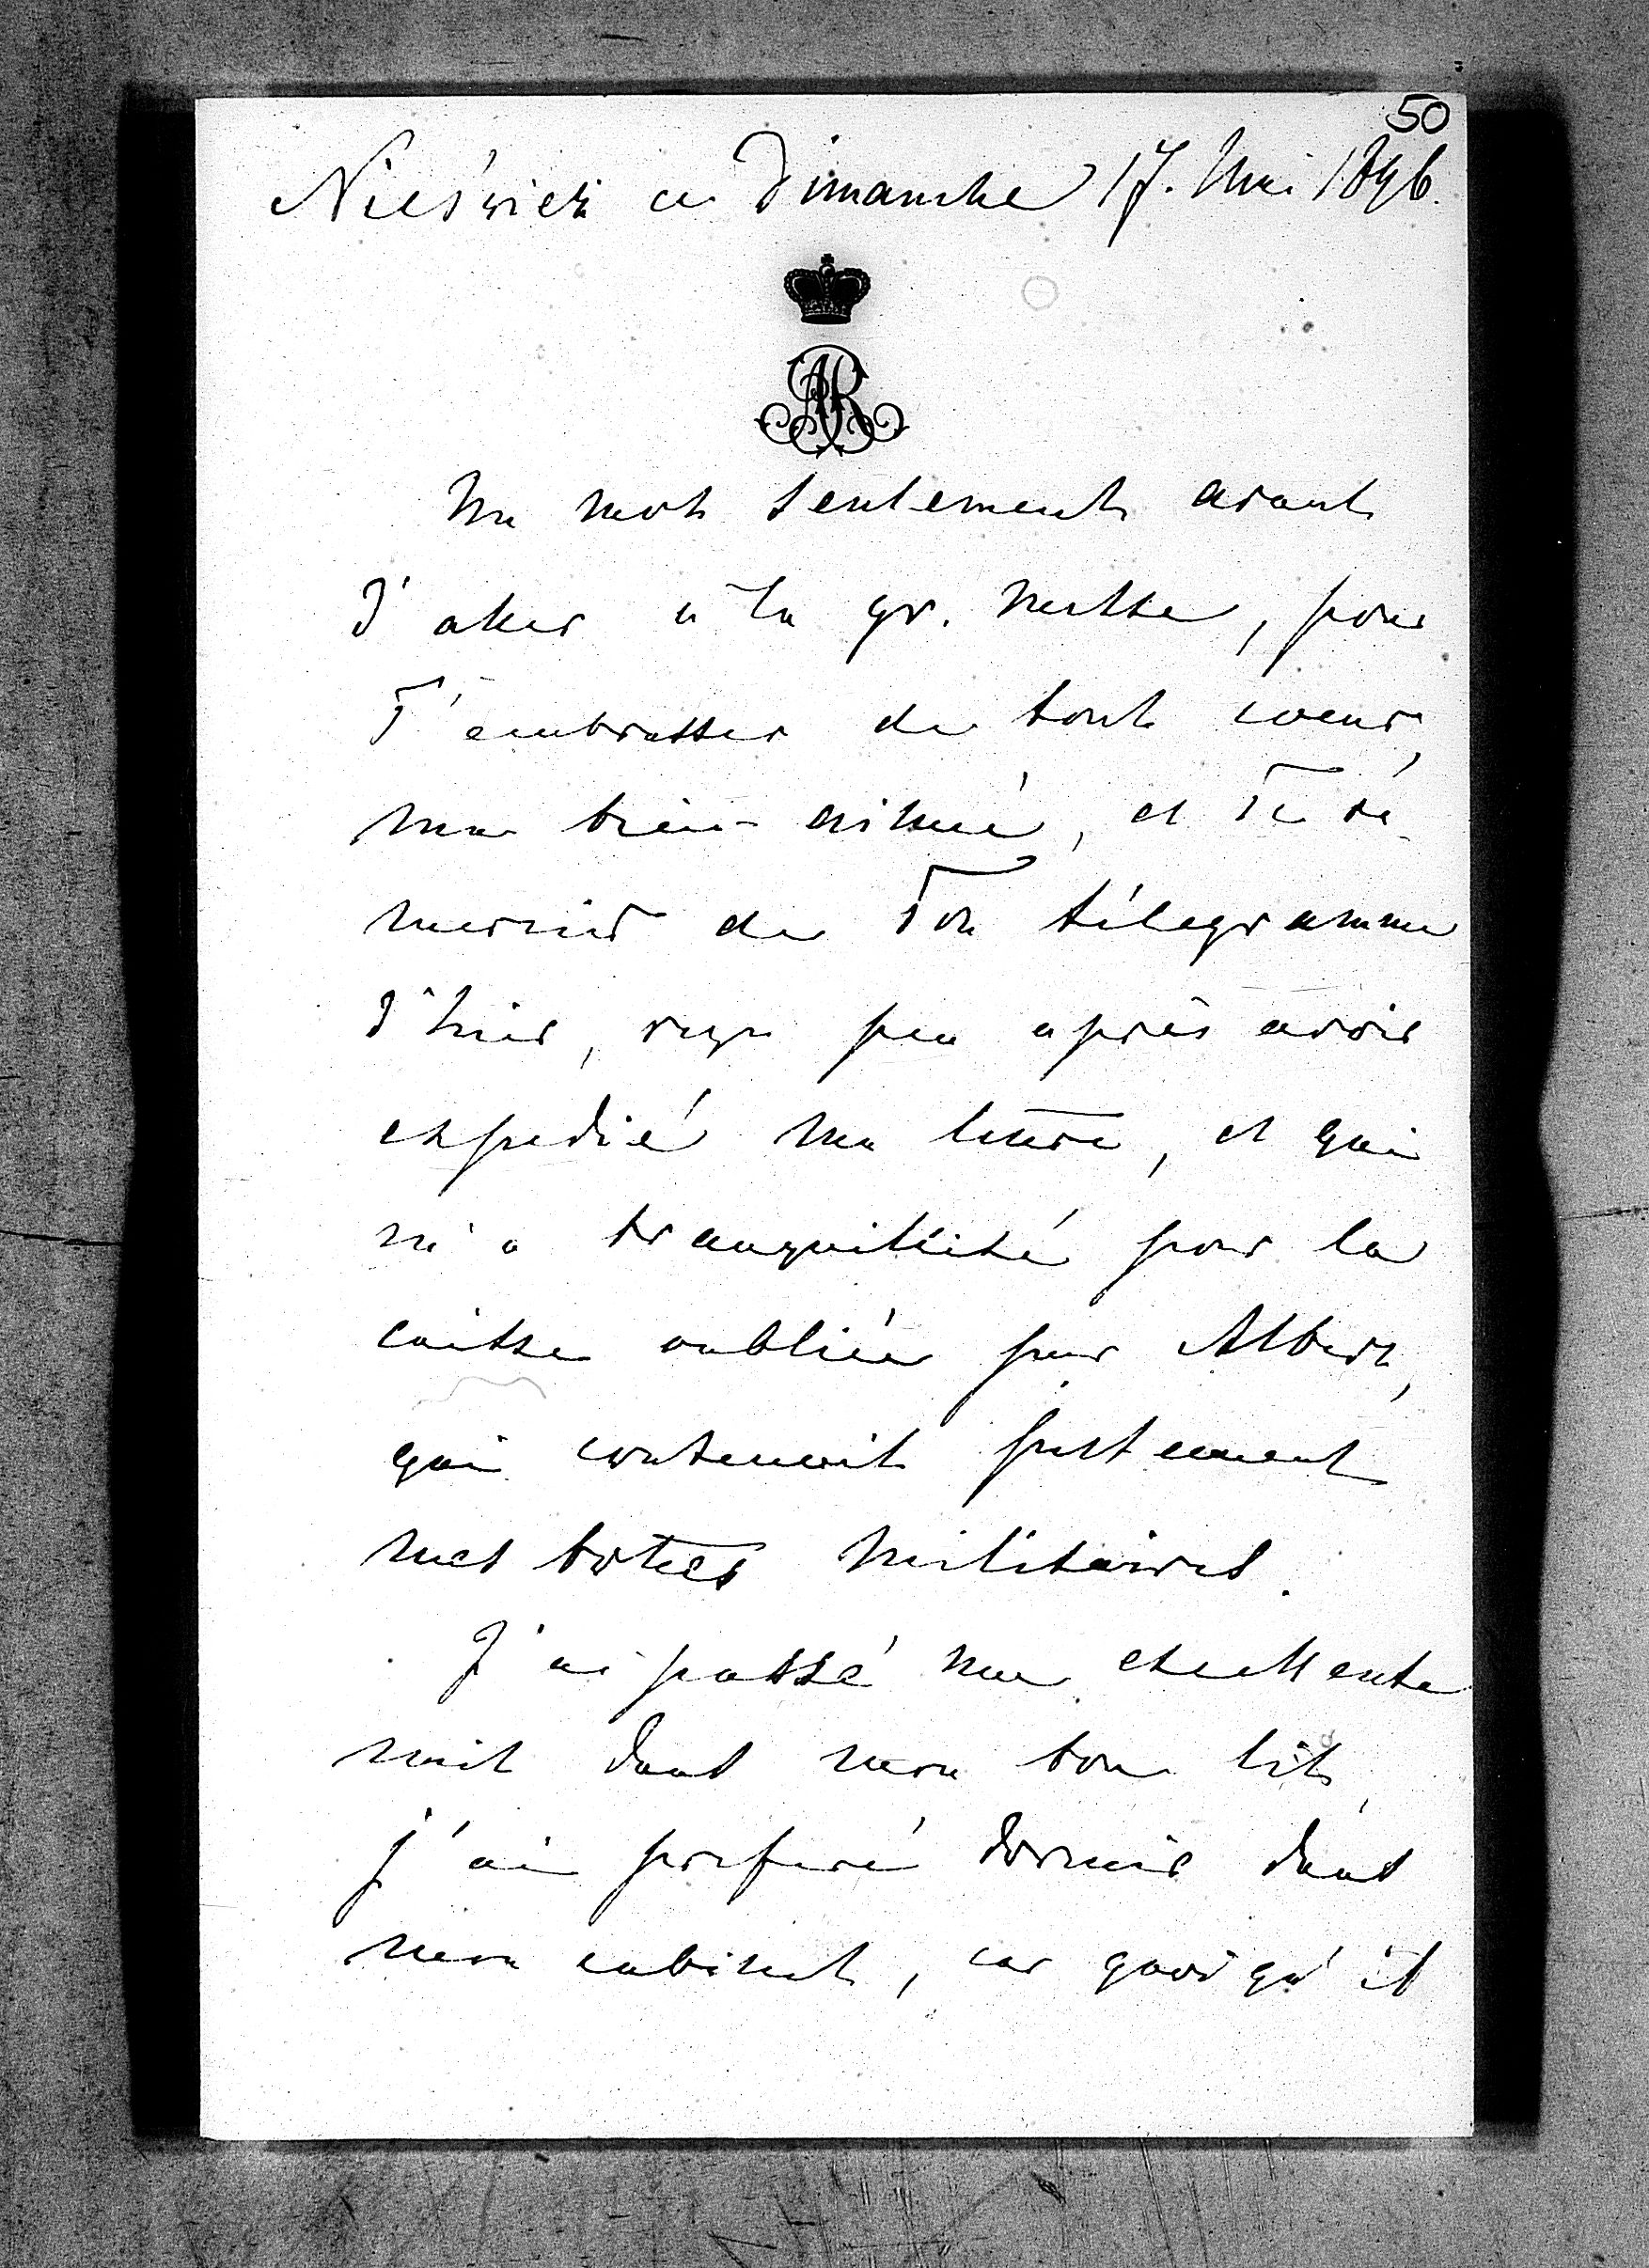 50
Nieśwież ce Dimanche 17. Mai 1896.
AR
Un mot seulement avant
d'aller à la gr. messe, pour
T'embrasser de tout coeur,
ma bien-aimée, et Te re-
mercier de Ton télegramme
d'hier, reçu peu après avoir
expedié ma lettre, et qui
m'a tranquillisé pour la
caisse oubliée par Albert,
qui contenait justement
mes bottes militaires.
J'ai passé une excellente
nuit dans mon bon lit,
j'ai preferé dormir dans
mon cabinet, car quoiqu'il